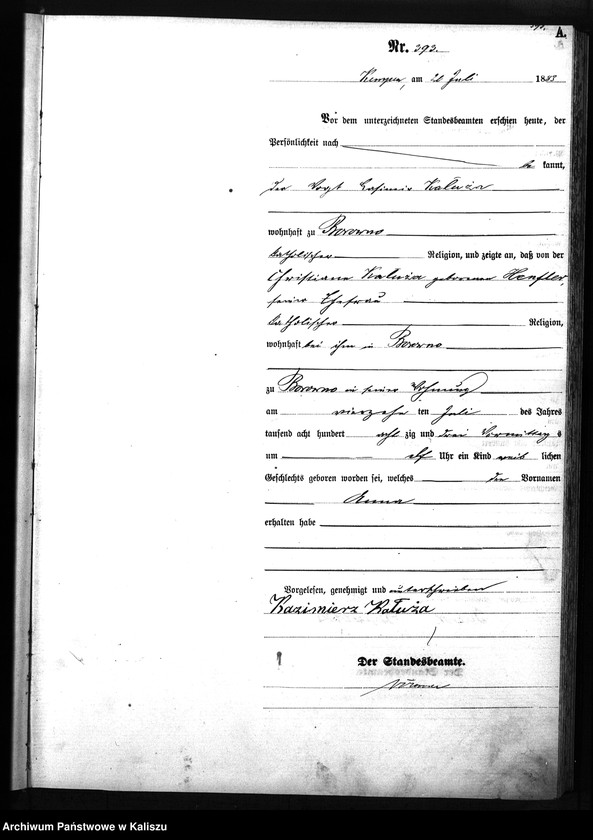 A.
Nr. 292.
Kempen, am 20 Juli 1883
Vor dem unterzeichneten Standesbeamten erschien heute, der
Persönlichkeit nach
be kannt,
der Vogt Casimir Kałuża
wohnhaft zu Borowno
katholischer Religion, und zeigte an, daß von der
Christiana Kałuża geborenen Henfler,
seiner Ehefrau
katholischer Religion,
wohnhaft bei ihm in Borowno
zu Borowno in seiner Wohnung
am vierzehn ten Juli des Jahres
tausend acht hundert acht zig und drei Vormittag s
um elf Uhr ein Kind weib lichen
Geschlechts geboren worden sei, welches den Vornamen
Anna
erhalten habe
Vorgelesen, genehmigt und unterschrieben
Kazimierz Kałuża
Der Standesbeamte.
Archiwum Państwowe w Kaliszu